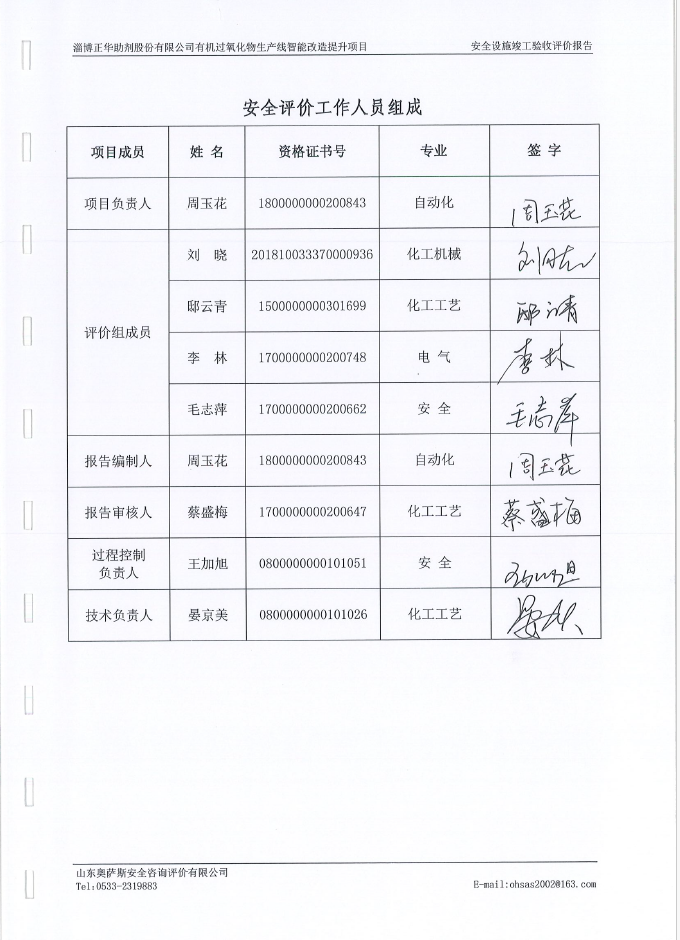 淄博正华助剂股份有限公司有机过氧化物生产线智能改造提升项目 安全设施竣工验收评价报告
安全评价工作人员组成
项目成员 姓 名 资格证书号 专业 签 字
项目负责人 周玉花 1800000000200843 自动化 周玉花
评价组成员
刘 晓 201810033370000936 化工机械
邸云青 1500000000301699 化工工艺 邸云青
李 林 1700000000200748 电 气 李林
毛志萍 1700000000200662 安 全 毛志萍
报告编制人 周玉花 1800000000200843 自动化 周玉花
报告审核人 蔡盛梅 1700000000200647 化工工艺 蔡盛梅
过程控制
负责人 王加旭 0800000000101051 安 全
技术负责人 晏京美 0800000000101026 化工工艺
山东奥萨斯安全咨询评价有限公司
Tel:0533-2319883 E-mail:ohsas2002@163.com